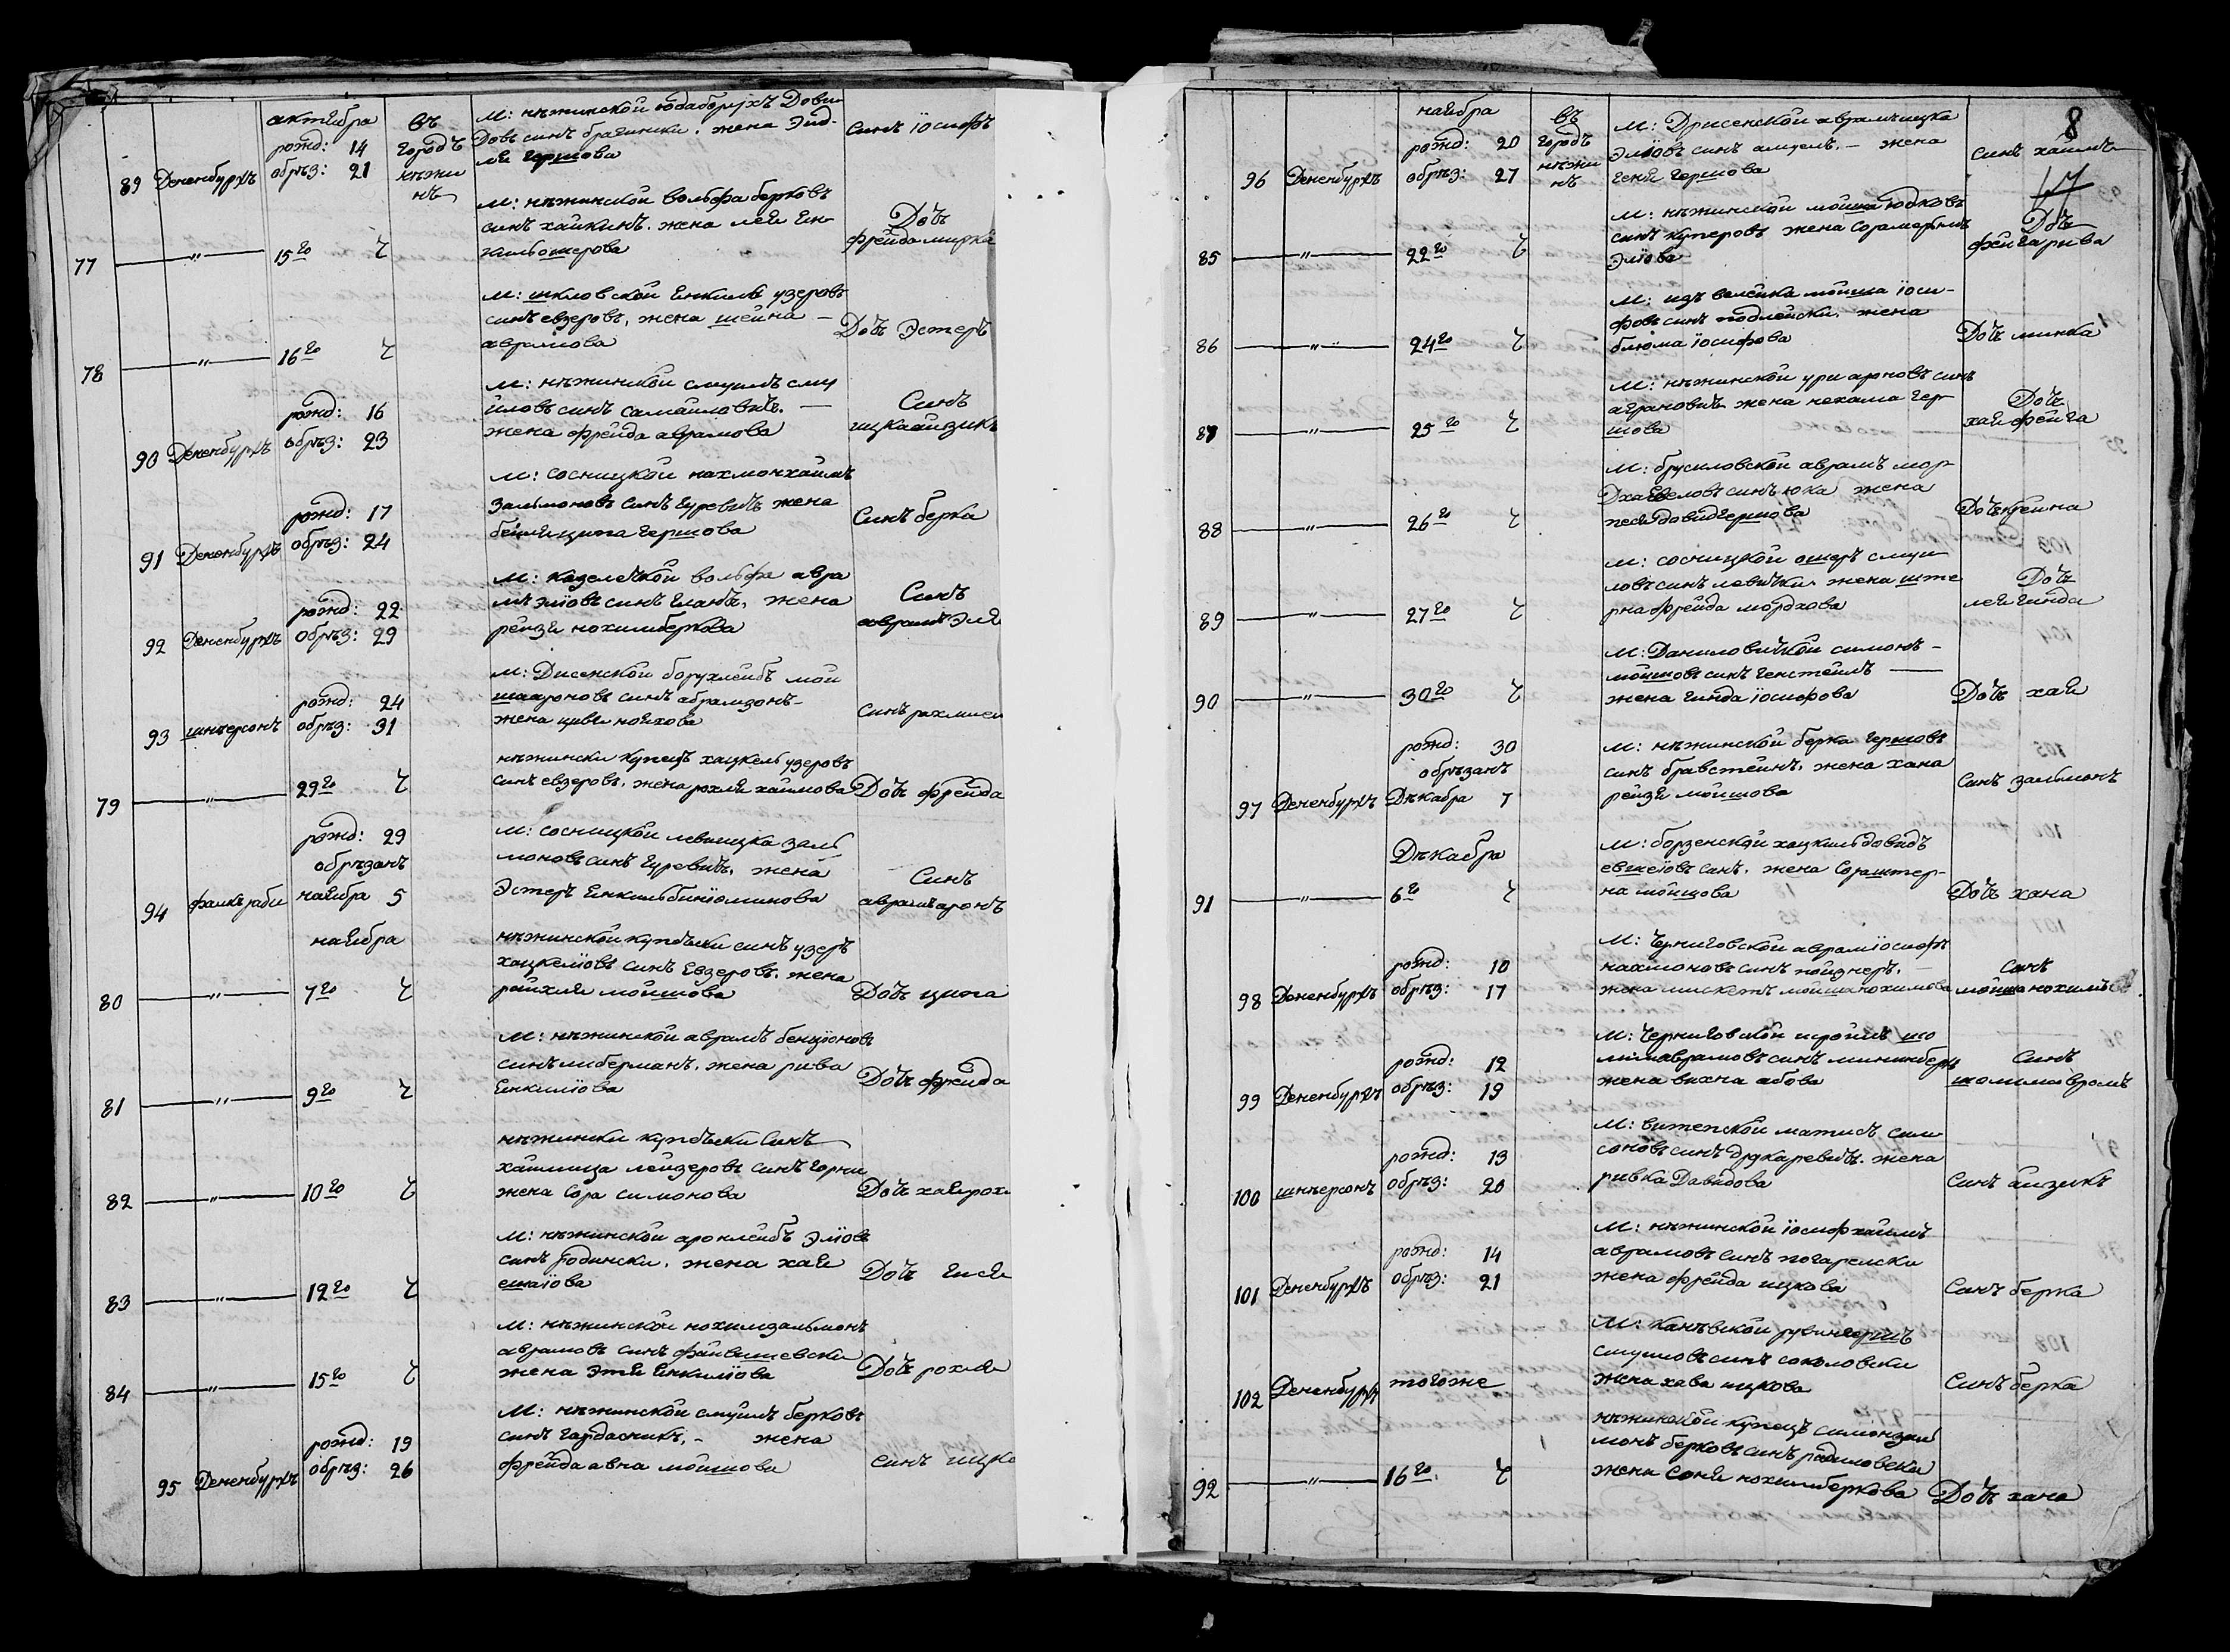 актября
въ
городѣ
нѣжи
нѣ
89 Дененбургъ
рожд: 14
обрѣз: 21
М: нѣжинской юдаборухъ Дови
Довъ синъ брагински, жена Эид-
ля гершова
Синъ іосифъ
77 — " — 15го
М: нѣжинской вольфа берковъ
синъ хаикинъ. жена лея Ен-
Дочъ
фрейда мирка
78 — " — 16го
М: шкловской Енкиль узеровъ
синъ евзеровъ, жена шейна —
аврамова
Дочъ Эстеръ
90 Дененбургъ
рожд: 16
обрѣз: 23
М: нѣжинской смуилъ сму
иловъ синъ самаиловичъ. —
жена фрейда аврамова
Синъ
ицкаайзикъ
91 Дененбургъ
рожд: 17
обрѣз: 24
М: сосницкой нахмонхаимъ
зальмоновъ синъ гуревичъ жена
бейляципа гершова
Синъ берка
92 Дененбургъ
рожд: 22
обрѣз: 29
М: козелецкой вольфа авра
мъ эліовъ синъ жена
рейзя нохимберкова
Синъ
аврамъ Эля
93 шнѣерсонъ
рожд: 24
обрѣз: 31
М: Дисенской борухлейбъ мои
шаароновъ синъ абрамзонъ-
жена цивя ноихова
синъ рахмиел
79 — " — 29го
нѣжински купецъ хацкель узеровъ
синъ евзеровъ, жена рохля хаимова
Дочъ фрейда
94 фалкъ раби
рожд: 29
обрѣзанъ
наября 5
М: сосницкой левицка заль
моновъ синъ гуревичъ, жена
Эстеръ Енкильбиніоминова
Синъ
аврамъаронъ
наября
80 — " — 7го
нѣжинской купечъски синъ узеръ
хацкеліовъ синъ Евзеровъ. жена
райхля мойшова
Дочъ ципа
81 — " — 9го
М: нѣжинской аврамъ бенціоновъ
синъ либерманъ. жена рива
Енкиліова
Дочъ фрейда
82 — " — 10го
нѣжински купечъски Синъ
лейзеровъ синъ
жена Сора симонова
Дочъ хаярох
83 — " — 12го
М: нѣжинской аронлейбъ Эліовъ
синъ родински, жена хая
ешаіова
Дочъ гися
84 — " — 15го
М: нѣжинской нохимзальмонъ
аврамовъ синъ файвишевски
жена Этя Енкиліова
Дочъ рохля
95 Дененбургъ
рожд: 19
обрѣз: 26
М: нѣжинской смуилъ берковъ
синъ гардасникъ, - жена
фрейда мойшова
синъ ицко
8
наября
въ
городѣ
нѣжи
нѣ
96 Дененбургъ
рожд: 20
обрѣз: 27
М: Дрисенской аврамъицка
Эліовъ синъ — жена
геня гершова
синъ хаимъ
85 — " — 22го
М: нѣжинской мойша юдковъ
синъ куперовъ жена
Эліова
Дочъ
фейгарива
86 — " — 24го
М: изъ велейка мойша іоси-
фовъ синъ подлейски. жена
блюма іосифова
Дочъ минка
87 — " — 25го
М: нѣжинской ури ароновъ синъ
аграновичъ жена нехама гер-
шова
Дочъ
хая фейга
88 — " — 26го
М: брусиловской аврамъ мор-
синъ юка жена
песядовидгершова
Дочъ крейна
89 — " — 27го
М: сосницкой ошеръ смуи-
ловъ синъ левички жена ште
рна фрейда мордхова
Дочъ
лея гинда
90 — " — 30го
М: Даниловичкой симонъ -
мойшовъ синъ генстейлъ —
жена гинда іосифова
Дочъ хая
97 Дененбургъ
рожд: 30
обрѣзанъ
Дѣкабра 7
М: нѣжинской берка гершовъ
синъ бравстейнъ, жена хана
рейзя мойшова
Синъ зальмонъ
Дѣкабра
91 — " — 6го
М: борзенской хацкильдовидъ
евшеіовъ синъ. жена Сораштер-
на мойшова
Дочъ хана
98 Дененбургъ
рожд: 10
обрѣз: 17
М: Черниговской авраміосифъ
нахмоновъ синъ пойзнеръ, -
жена мойшанохимова
Синъ
мойша нохимъ
99 Дененбургъ
рожд: 12
обрѣз: 19
М: Черниговской сроилъ шо
лимаврамовъ синъ
жена вихна абова
Синъ
шолимаврамъ
100 шнѣерсонъ
рожд: 13
обрѣз: 20
М: витепской матисъ сим-
соновъ синъ друкаревичъ. жена
ривка Давидова
Синъ айзикъ
101 Дененбургъ
рожд: 14
обрѣз: 21
М: нѣжинской іосифхаимъ
аврамовъ синъ погарелски
жена фрейда ицкова
Синъ берка
102 Дененбургъ
тогоже
М: Канѣвской рувингершъ
смуиловъ синъ соколовски
жена хава ицкова
Синъ берка
92 — " — 16го.
нѣжинской купецъ симонзал
монъ берковъ синъ радиловски
жена Соня нохимберкова
Дочъ хана